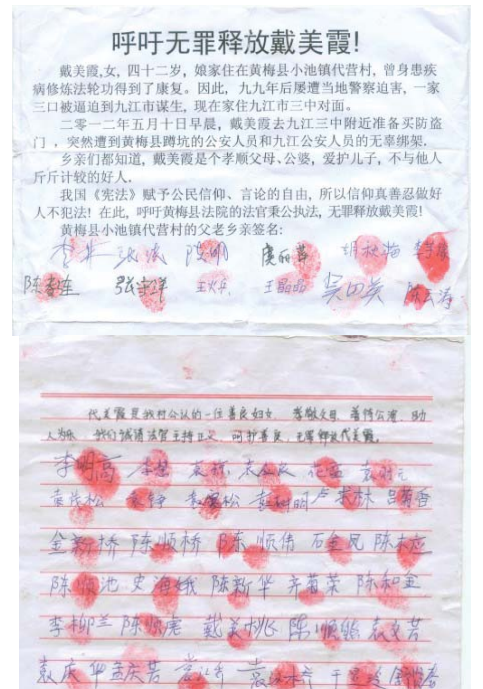 呼吁无罪释放戴美霞!
戴美霞,女,四十二岁，娘家住在黄梅县小池镇代营村，曾身患疾
病修炼法轮功得到了康复。因此，九九年后屡遭当地警察迫害，一家
三口被逼迫到九江市谋生，现在家住九江市三中对面。
二零一二年五月十日早晨，戴美霞去九江三中附近准备买防盗
门，突然遭到黄梅县蹲坑的公安人员和九江公安人员的无辜绑架.
乡亲们都知道，戴美霞是个孝顺父母、公婆，爱护儿子，不与他人
斤斤计较的好人.
我国《宪法》赋予公民信仰、言论的自由，所以信仰真善忍做好
人不犯法!在此，呼吁黄梅县法院的法官秉公执法，无罪释放戴美霞!
黄梅县小池镇代营村的父老乡亲签名:
陈明 胡秋梅
张宝祥 王火兵 王丽娟 吴四英
代美霞是我村公认的一位善良妇女 孝敬父母 善待公婆 助
人为乐 我们诚请法官主持正义 呵护善良 无罪释放代美霞。
李明高
吕菊香
金新桥 陈顺桥 陈顺伟 石金凤
陈顺池 史海娥 陈新华 齐菊荣 陈和金
李柳兰 陈顺康 戴美桃
袁庆华 孟庆芳